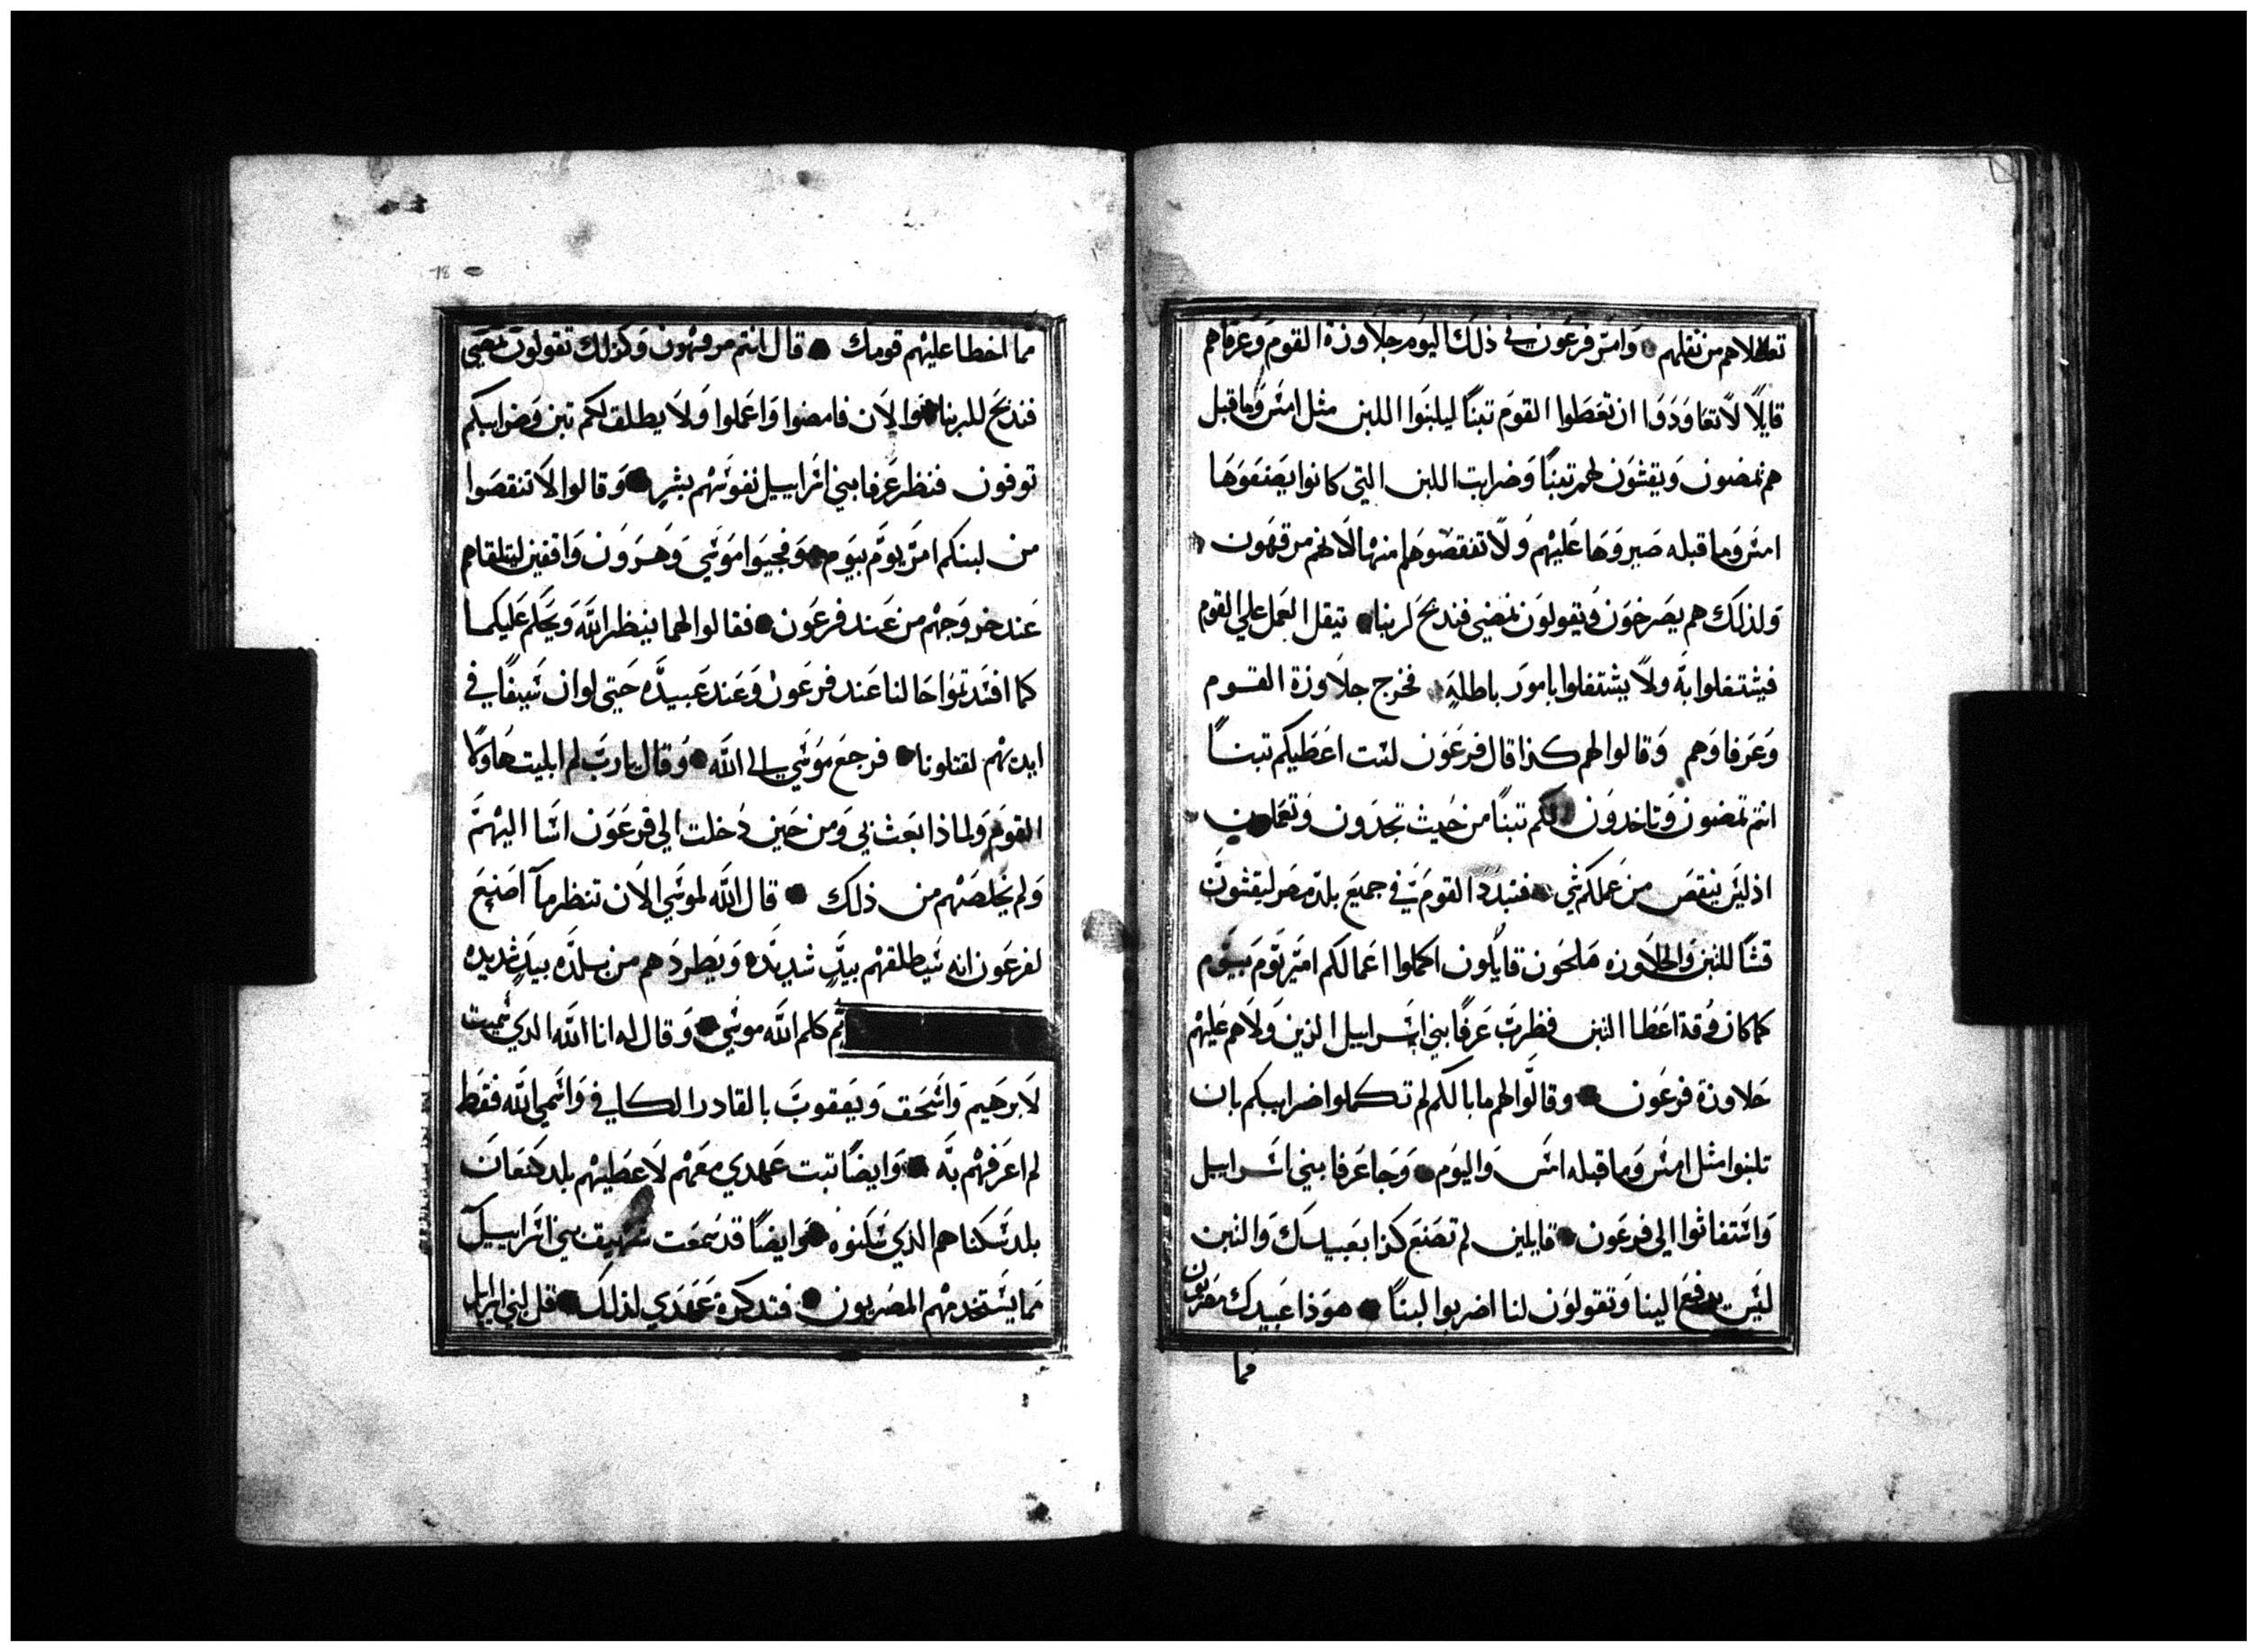 تعطلاهم من ثقلهم ● وامر فرعون في ذلك اليوم جلاوزة القوم وعرفاهم
قايلًا لا تعاودوا ان تعطوا القوم تبنًا ليلبنوا اللبن مثل امس وما قبل
هم يمضون ويقشون لهم تبنًا وضرايب اللبن التي كانوا يصنعوها
امس وما قبله صيروها عليهم ولا تنقصوهم منها لانهم مرفهون
ولذلك هم يصرخون ويقولون نمضي فندبح لربنا ● يثقل العمل علي القوم
فيشتغلوا به ولا يشتغلوا بامور باطله ● فخرج جلاوزة القوم
وعرفاوهم وقالوا لهم كذا قال فرعون لست اعطيكم تبنًا
انتم تمضون وتاخدون لكم تبنًا من حيث تجدون وتعملون
اذ ليس ينقص من عملكم شي ● فتبدد القوم في جميع بلد مصر ليقشون
قشًا للتبن والجلاوزه ملحون قايلون اكملوا اعمالكم امر يوم بيوم
كما كان وقت اعطا التبن فضرب عرفا بني اسراييل الذين ولاهم عليهم
جلاوزة فرعون ● وقالوا لهم ما بالكم لم تكملوا ضرايبكم بان
تلبنوا مثل امس وما قبله امس واليوم ● وجا عرفا بني اسراييل
واستغاثوا الي فرعون ● قايلين لم تصنع كذا بعبيدك والتبن
ليس يدفع الينا وتقولون لنا اضربوا لبنًا ● هوذا عبيدك مضربون
فما
78
مما اخطا عليهم قومك ● قال انتم مرفهون وكذلك تقولون نمضي
فندبح للربنا ● والان فامضوا واعملوا ولا يطلق لكم تبن وضرايبكم
توفون فنظر عرفا بني اسراييل نفوسهم بشر ● وقالوا لا تنقصوا
من لبنكم امر يوم بيوم ● وفجيوا موسي وهرون واقفين لتلقاهم
عند خروجهم من عند فرعون ● فقالوا لهما ينظر الله ويحكم عليكما
كما افسدتموا حالنا عند فرعون وعند عبيده حتي لو ان سيفًا في
ايديهم لقتلونا ● فرجع موسي الي الله ● وقال يا رب لم ابليت هاولا
القوم ولماذا بعثت بي ومن حين دخلت الي فرعون اسا اليهم
ولم يخلصهم من ذلك ● قال الله لموسي الان تنظر ما اصنع
لفرعون انه سيطلقهم بيد شديده ويطردهم من بلده بيد شديده
ثم كلم الله موسي ● وقال له انا الله الدي سميت
لابرهيم واسحق ويعقوب بالقادر الكافي واسمي الله فقط
لم اعرفهم به ● وايضًا ثبت عهدي معهم لاعطيهم بلد كنعان
بلد سكناهم الذي سكنوه ● وايضًا قد سمعت شهيق بني اسراييل
مما يستخدمهم المصريون ● فتدكرة عهدي لذلك ● قل لبني اسراييل